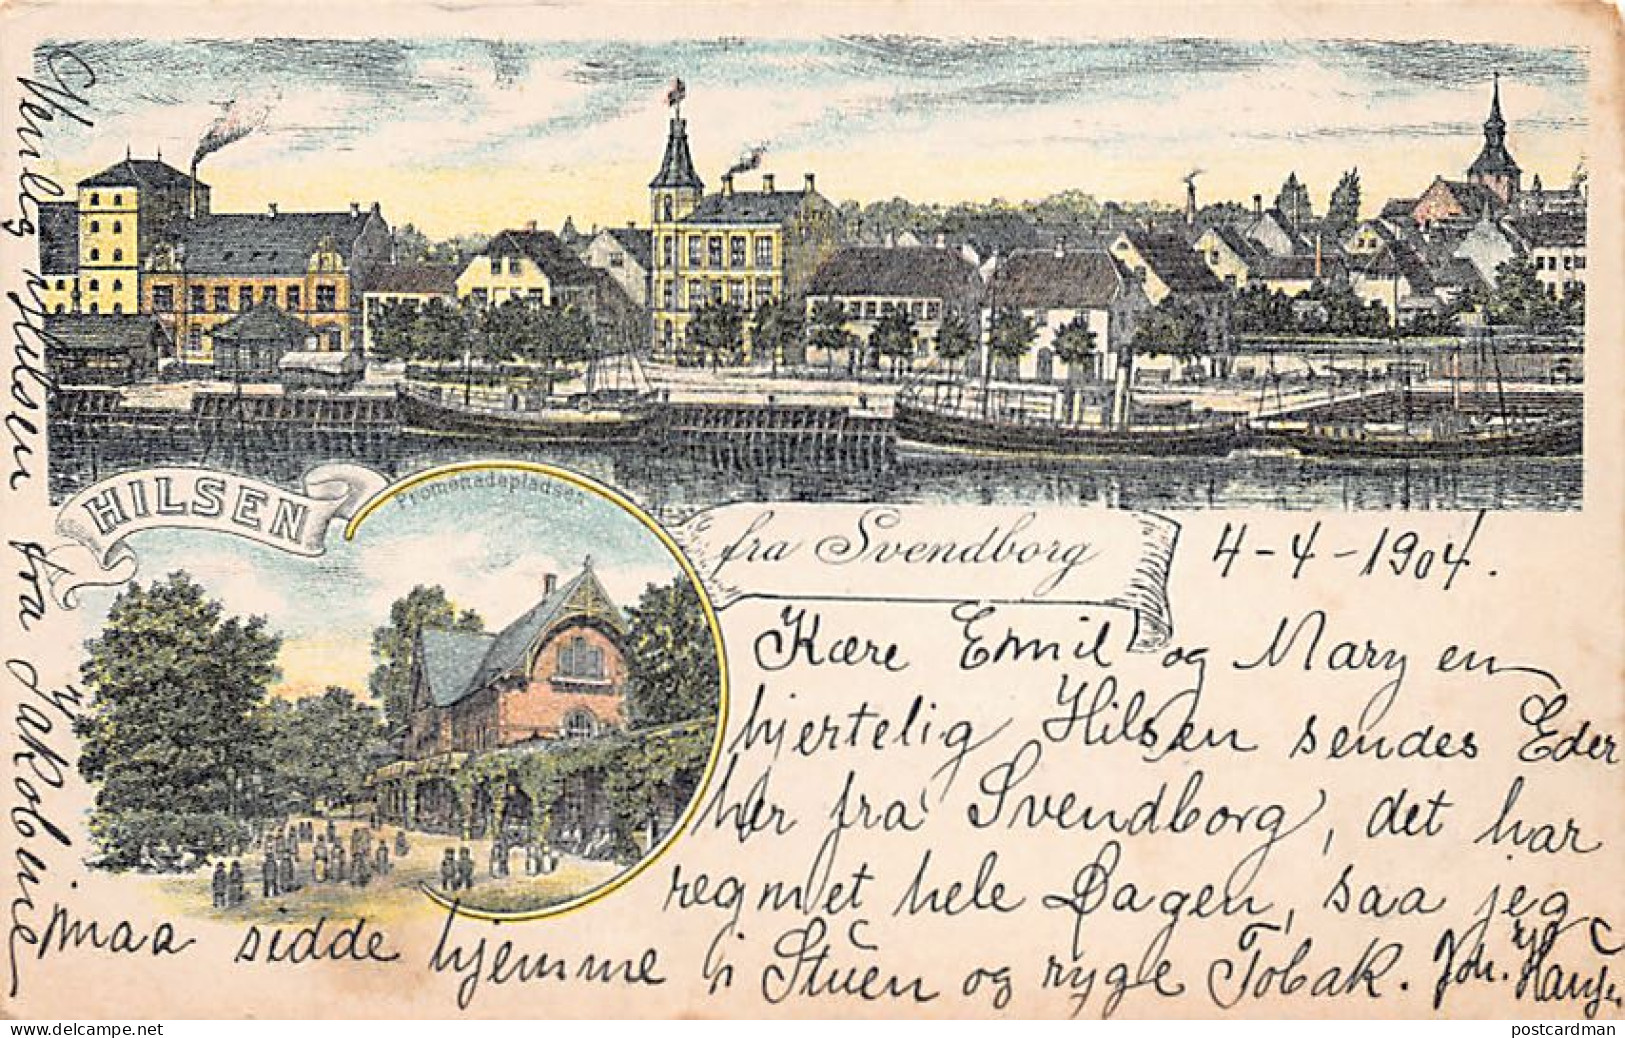 HILSEN
Promenadepladsen
fra Svendborg
4-4-1904.
Kære Emil og Mary en
hjertelig Hilsen sendes Eder
her fra Svendborg, det har
regnet hele Dagen, saa jeg
maa sidde hjemme i Stuen og ryge Tobak. Joh.
Venlig Hilsen fra Jakobine
postcardman
delcampe.net
postcardman